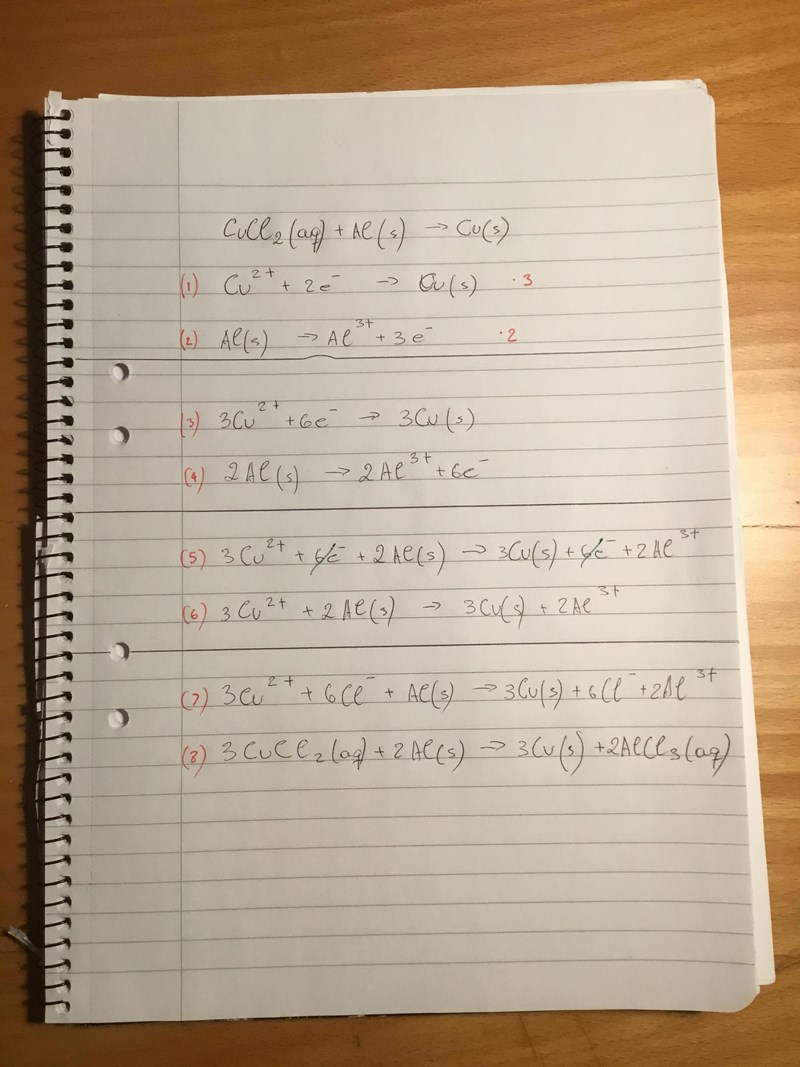 CuCl₂(aq) + Al(s) → Cu(s)
(1) Cu²⁺ + 2e⁻ → Cu(s) ·3
(2) Al(s) → Al³⁺ + 3e⁻ ·2
(3) 3Cu²⁺ + 6e⁻ → 3Cu(s)
(4) 2Al(s) → 2Al³⁺ + 6e⁻
(5) 3Cu²⁺ + 6e⁻ + 2Al(s) → 3Cu(s) + 6e⁻ + 2Al³⁺
(6) 3Cu²⁺ + 2Al(s) → 3Cu(s) + 2Al³⁺
(7) 3Cu²⁺ + 6Cl⁻ + Al(s) → 3Cu(s) + 6Cl⁻ + 2Al³⁺
(8) 3CuCl₂(aq) + 2Al(s) → 3Cu(s) + 2AlCl₃(aq)